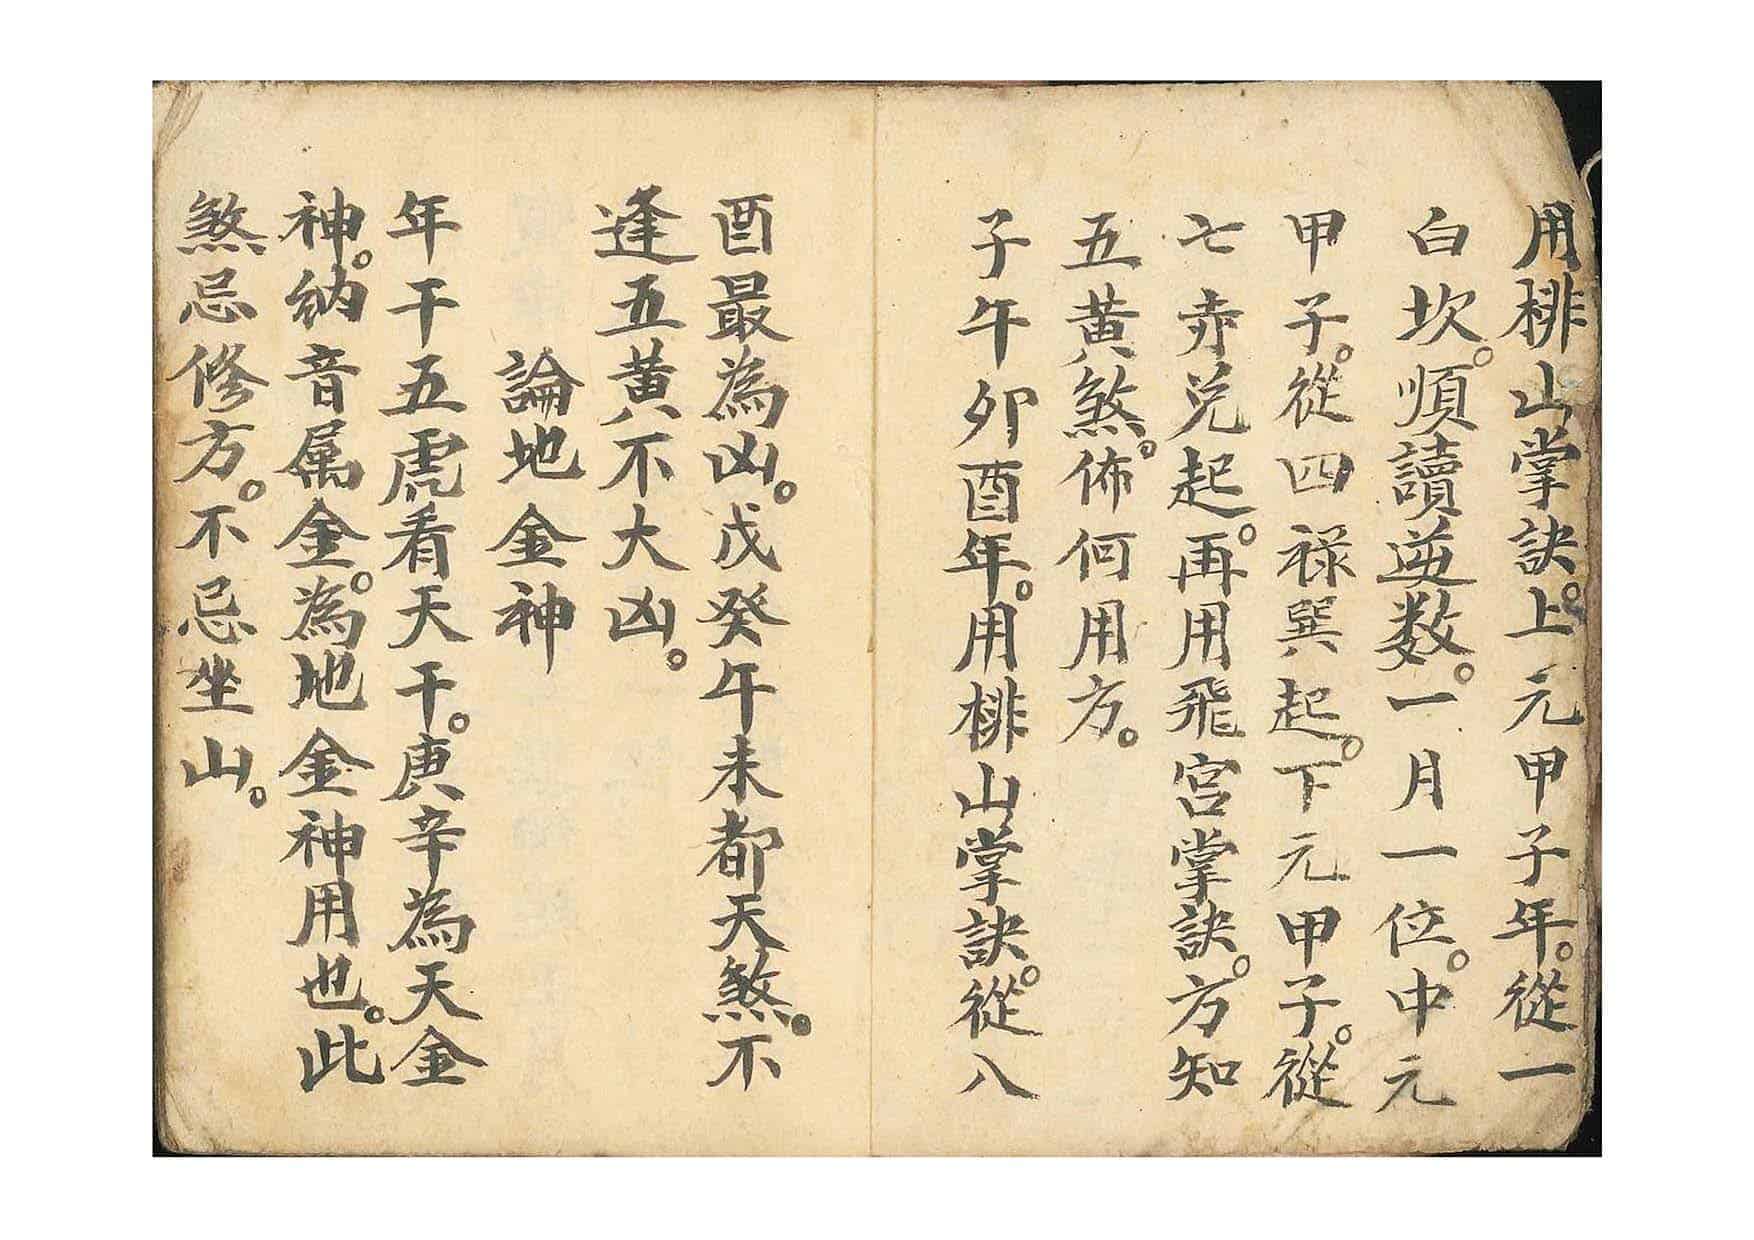 用排山掌訣。上元甲子年。從一
白坎。順讀逆数。一月一位。中元
甲子。從四禄巽起。下元甲子。從
七赤兑起。再用飛宮掌訣。方知
五黄煞。佈何用方。
子午卯酉年。用排山掌訣。從八
酉最為凶。戊癸午未都天煞。不
逢五黄不大凶。
論地金神
年干五虎看天干。庚辛為天金
神。納音属金。為地金神用也。此
煞忌修方。不忌坐山。